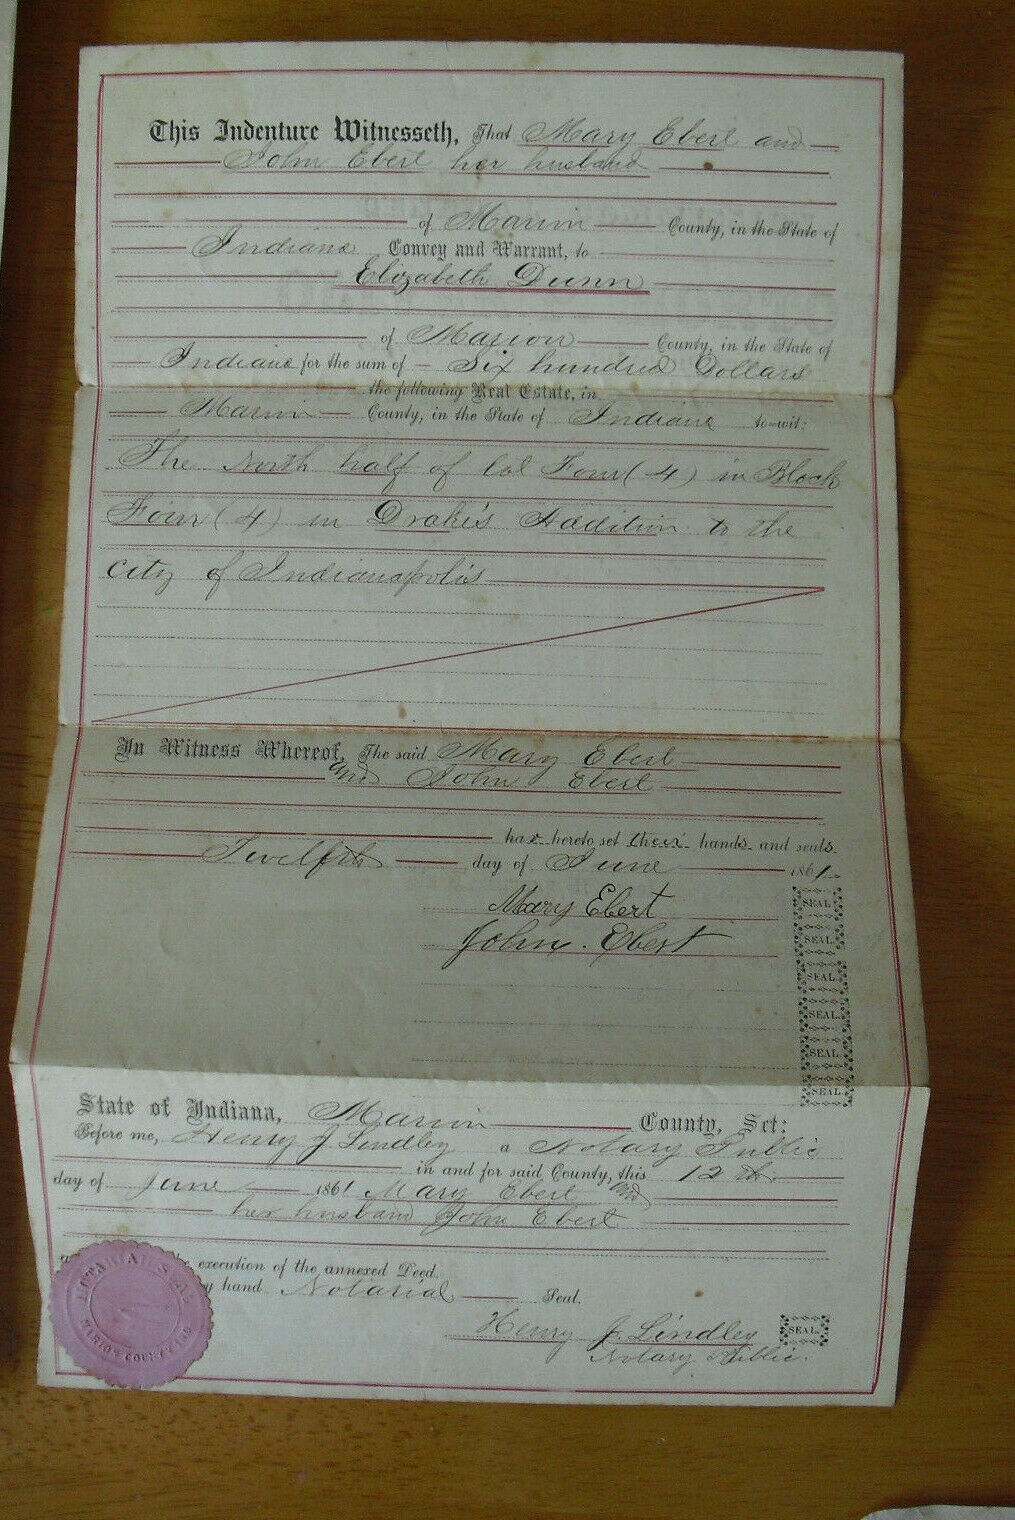 This Indenture Witnesseth, That Mary Ebert and
John Ebert her husband
of Marion County, in the State of
Indiana Convey and Warrant, to
Elizabeth Dunn
of Marion County, in the State of
Indiana for the sum of Six hundred Dollars
the following Real Estate, in
Marion County, in the State of Indiana to-wit:
The North half of lot Four (4) in Block
Four (4) in Drake's Addition to the
City of Indianapolis
In Witness Whereof, The said Mary Ebert
and John Ebert
have hereto set their hands and seals
Twelfth day of June 1861.
Mary Ebert SEAL
John. Ebert SEAL.
SEAL.
SEAL.
SEAL.
SEAL.
State of Indiana, Marion County, Sct:
Before me, Henry J. Lindley a Notary Public
in and for said County, this 12th
day of June 1861 Mary Ebert and
her husband John Ebert
execution of the annexed Deed.
hand Notarial Seal.
Henry J. Lindley SEAL.
Notary Public.
NOTARIAL SEAL
MARION COUNTY IND